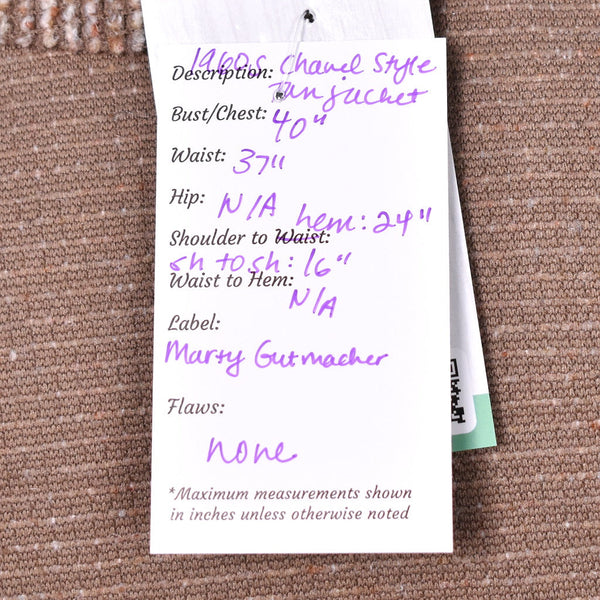 Description: 1960s Chanel Style
Tan jacket
Bust/Chest: 40"
Waist: 37"
Hip: N/A
Shoulder to Waist: hem: 24"
sh to sh: 16"
Waist to Hem: N/A
Label:
Marty Gutmacher
Flaws:
none
*Maximum measurements shown
in inches unless otherwise noted